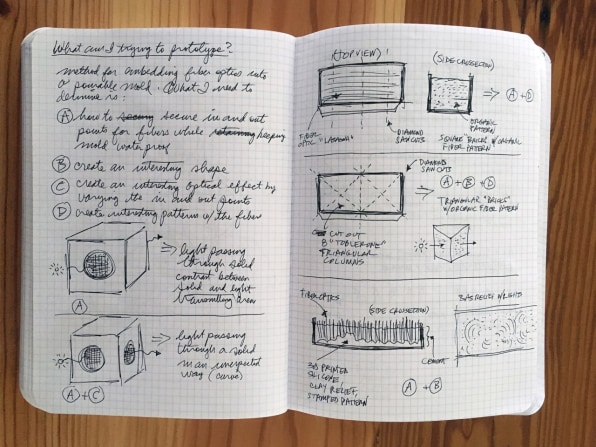 What am I trying to prototype?
method for embedding fiber optics into
a pourable mold. What I need to
determine is:
A how to secure in and out
points for fibers while keeping
mold waterproof
B create an interesting shape
C create an interesting optical effect by
varying the in and out points
D create interesting patterns w/ the fiber
⇒ light passing
through solid
contrast between
solid and light
transmitting area
A
⇒ light passing
through a solid
in an unexpected
way (curve)
A + C
(TOP VIEW)
FIBER
OPTIC "LASAGNA"
DIAMOND
SAW CUTS
(SIDE CROSSECTION)
⇒ A + D
ORGANIC
PATTERN
SQUARE "BRICKS" W/ ORGANIC
FIBER PATTERN
DIAMOND
SAW CUTS
⇒ A + B + D
TRIANGULAR "BRICKS"
W/ ORGANIC FIBER PATTERN
CUT OUT
8 "TOBLERONE"
TRIANGULAR
COLUMNS
FIBEROPTICS
(SIDE CROSSECTION)
CEMENT
3D PRINTED
SILICONE,
CLAY RELIEF,
STAMPED PATTERN
A + B